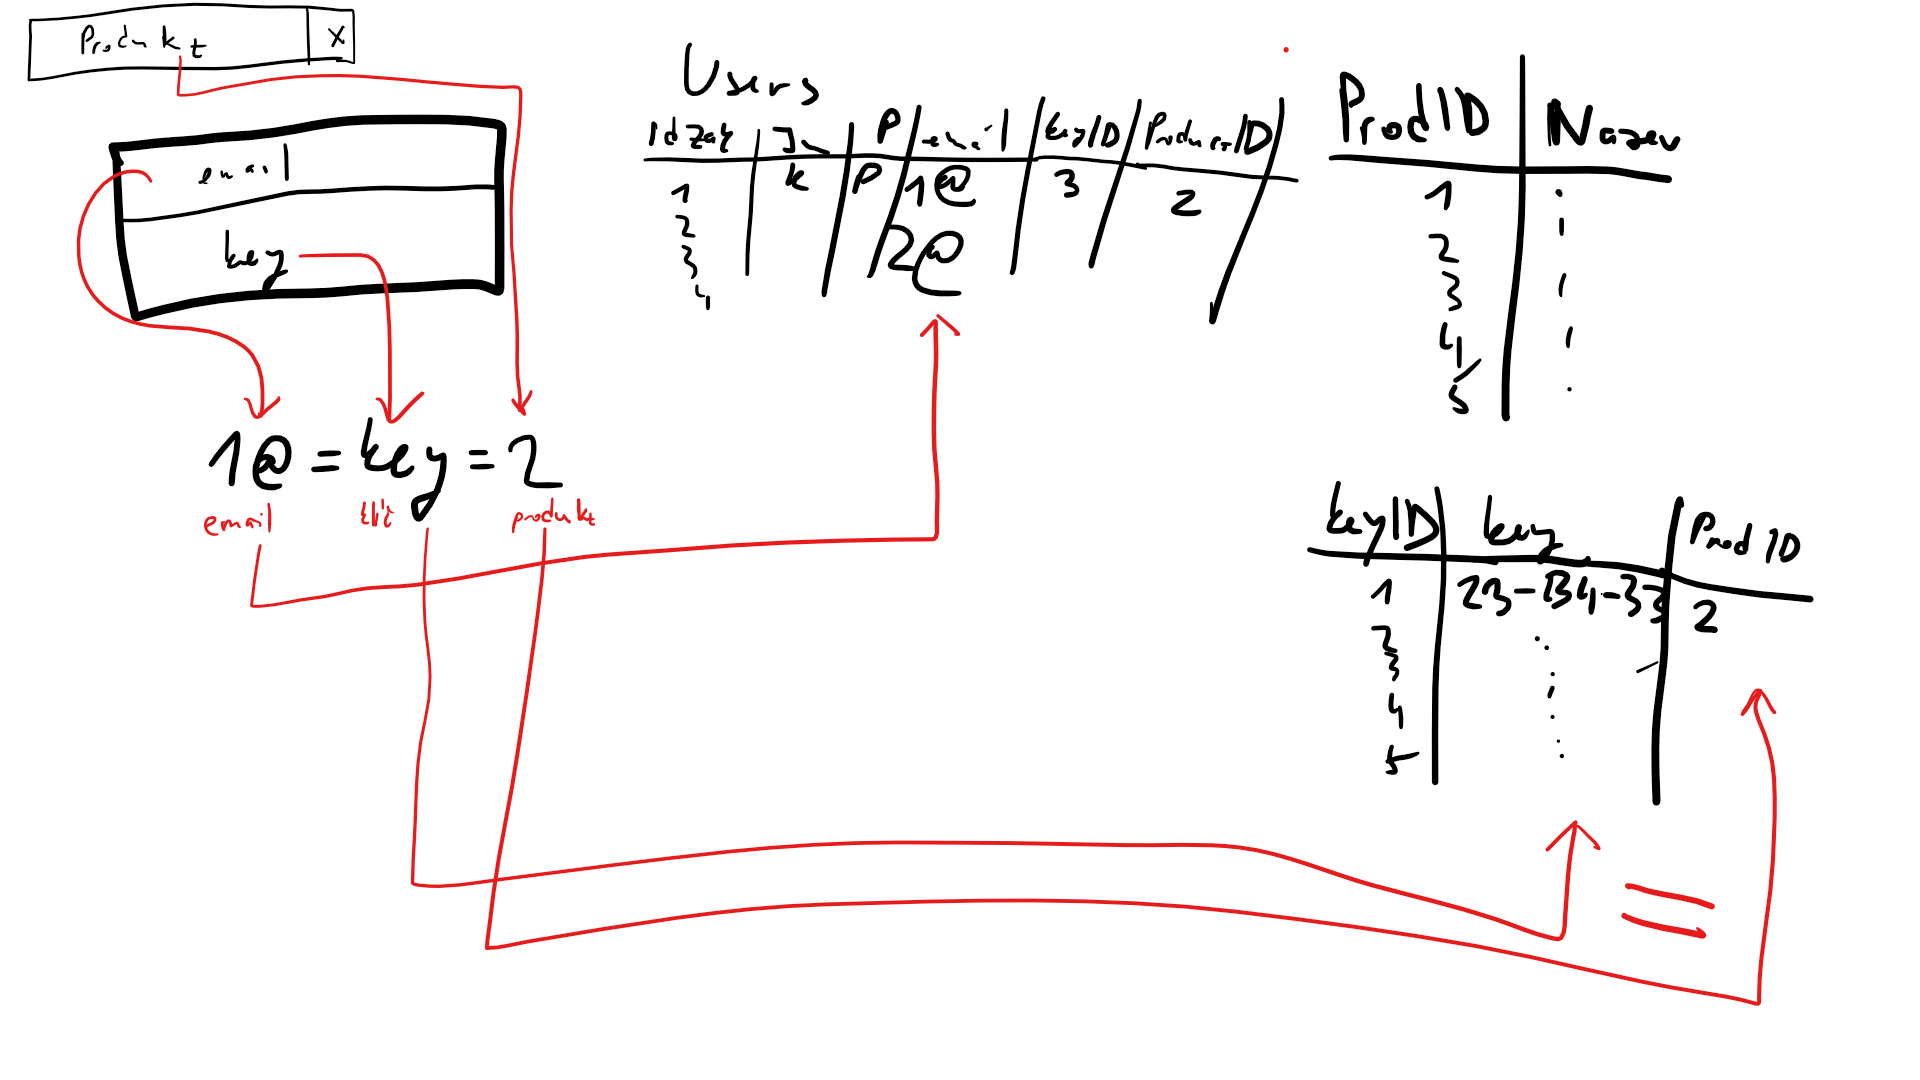 Produkt X
email
key
1@ = key = 2
email klíč produkt
Users
IdZak Jm P email keyID ProduktID
1 k P 1@ 3 2
2 2@
3
4
ProdID Nazev
1
2
3
4
5
keyID key Prod ID
1 23-B4-33 2
2
3
4
5
=